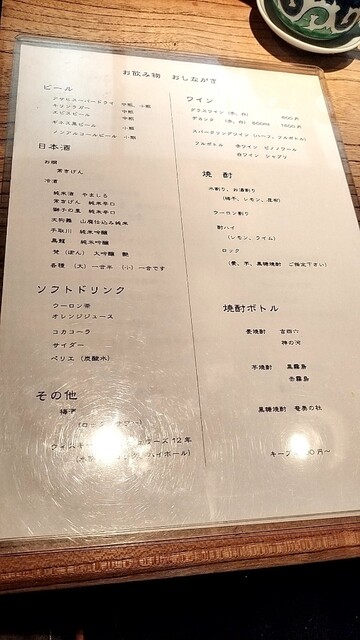 お飲み物 おしながき
ビール
アサヒスーパードライ 中瓶、小瓶
キリンラガー 中瓶
エビスビール 中瓶
ギネス黒ビール 小瓶
ノンアルコールビール 小瓶
日本酒
お燗
菊きげん
冷酒
純米酒 やましろ
常きげん 純米辛口
獅子の里 純米辛口
天狗舞 山廃仕込み純米
手取川 純米吟醸
黒龍 純米吟醸
梵（ぼん） 大吟醸
各種 （大）一合半 （小）一合です
ソフトドリンク
ウーロン茶
オレンジジュース
コカコーラ
サイダー
ペリエ（炭酸水）
その他
梅酒
12年
ハイボール）
ワイン
グラスワイン（赤、白） 600円
デカンタ （赤、白） 500ml 1800円
スパークリングワイン（ハーフ、フルボトル）
フルボトル 赤ワイン ピノノワール
白ワイン シャブリ
焼酎
水割り、お湯割り
（梅干、レモン、昆布）
ウーロン割り
酎ハイ
（レモン、ライム）
ロック
（麦、芋、黒糖焼酎 ご指定下さい）
焼酎ボトル
麦焼酎 吉四六
神の河
芋焼酎 黒霧島
赤霧島
黒糖焼酎 奄美の杜
キープ 円～